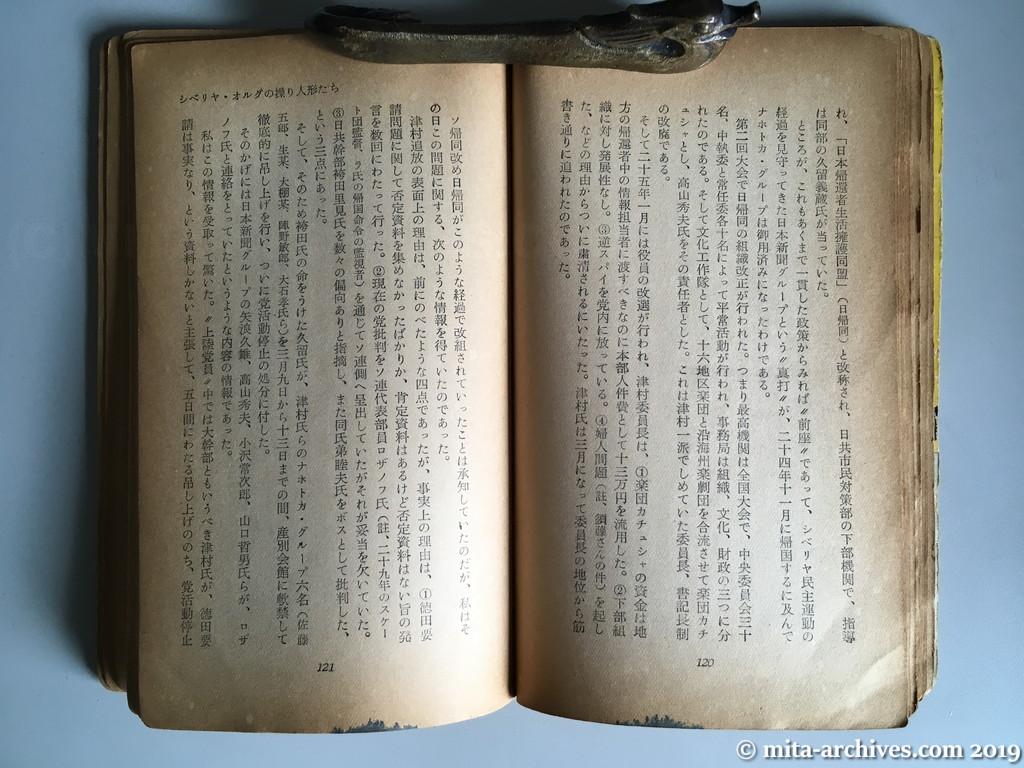 れ、「日本帰還者生活擁護同盟」（日帰同）と改称され、日共市民対策部の下部機関で、指導
は同部の久留義蔵氏が当っていた。
ところが、これもあくまで一貫した政策からみれば〝前座〟であって、シベリヤ民主運動の
経過を見守ってきた日本新聞グループという〝真打〟が、二十四年十一月に帰国するに及んで
ナホトカ・グループは御用済みになったわけである。
第二回大会で日帰同の組織改正が行われた。つまり最高機関は全国大会で、中央委員会三十
名、中執委と常任委各十名によって平常活動が行われ、事務局は組織、文化、財政の三つに分
れたのである。そして文化工作隊として、十六地区楽団と沿海州楽劇団を合流させて楽団カチ
ューシャとし、高山秀夫氏をその責任者とした。これは津村一派でしめていた委員長、書記長制
の改廃である。
そして二十五年一月には役員の改選が行われ、津村委員長は、①楽団カチューシャの資金は地
方の帰還者中の情報担当者に渡すべきなのに本部人件費として十三万円を流用した。②下部組
織に対し発展性なし。③逆スパイを党内に放っている。④婦人問題（註、須藤さんの件）を起し
た、などの理由からついに粛清されるにいたった。津村氏は三月になって委員長の地位から筋
書き通りに追われたのであった。
120
シベリヤ・オルグの操り人形たち
ソ帰同改め日帰同がこのような経過で改組されていったことは承知していたのだが、私はそ
の日この問題に関する、次のような情報を得ていたのであった。
津村追放の表面上の理由は、前にのべたような四点であったが、事実上の理由は、①徳田要
請問題に関して否定資料を集めなかったばかりか、肯定資料はあるけど否定資料はない旨の発
言を数回にわたって行った。②現在の党批判をソ連代表部員ロザノフ氏（註、二十九年のスケー
ト団監督、ラ氏の帰国命令の監視者）を通じてソ連側へ呈出していたがそれが妥当を欠いていた。
③日共幹部袴田里見氏を数々の偏向ありと指摘し、また同氏弟睦夫氏をボスとして批判した、
という三点にあった。
そして、そのため袴田氏の命をうけた久留氏が、津村氏らのナホトカ・グループ六名（佐藤
五郎、生某、大棚某、陣野敏郎、大石孝氏ら）を三月九日から十三日までの間、産別会館に軟禁して
徹底的に吊し上げを行い、ついに党活動停止の処分に付した。
そのかげには日本新聞グループの矢浪久雄、高山秀夫、小沢常次郎、山口哲男氏らが、ロザ
ノフ氏と連絡をとっていたというような内容の情報であった。
私はこの情報を受取って驚いた。〝上陸党員〟中では大幹部ともいうべき津村氏が、徳田要
請は事実なり、という資料しかないと主張して、五日間にわたる吊し上げののち、党活動停止
121
© mita-archives.com 2019